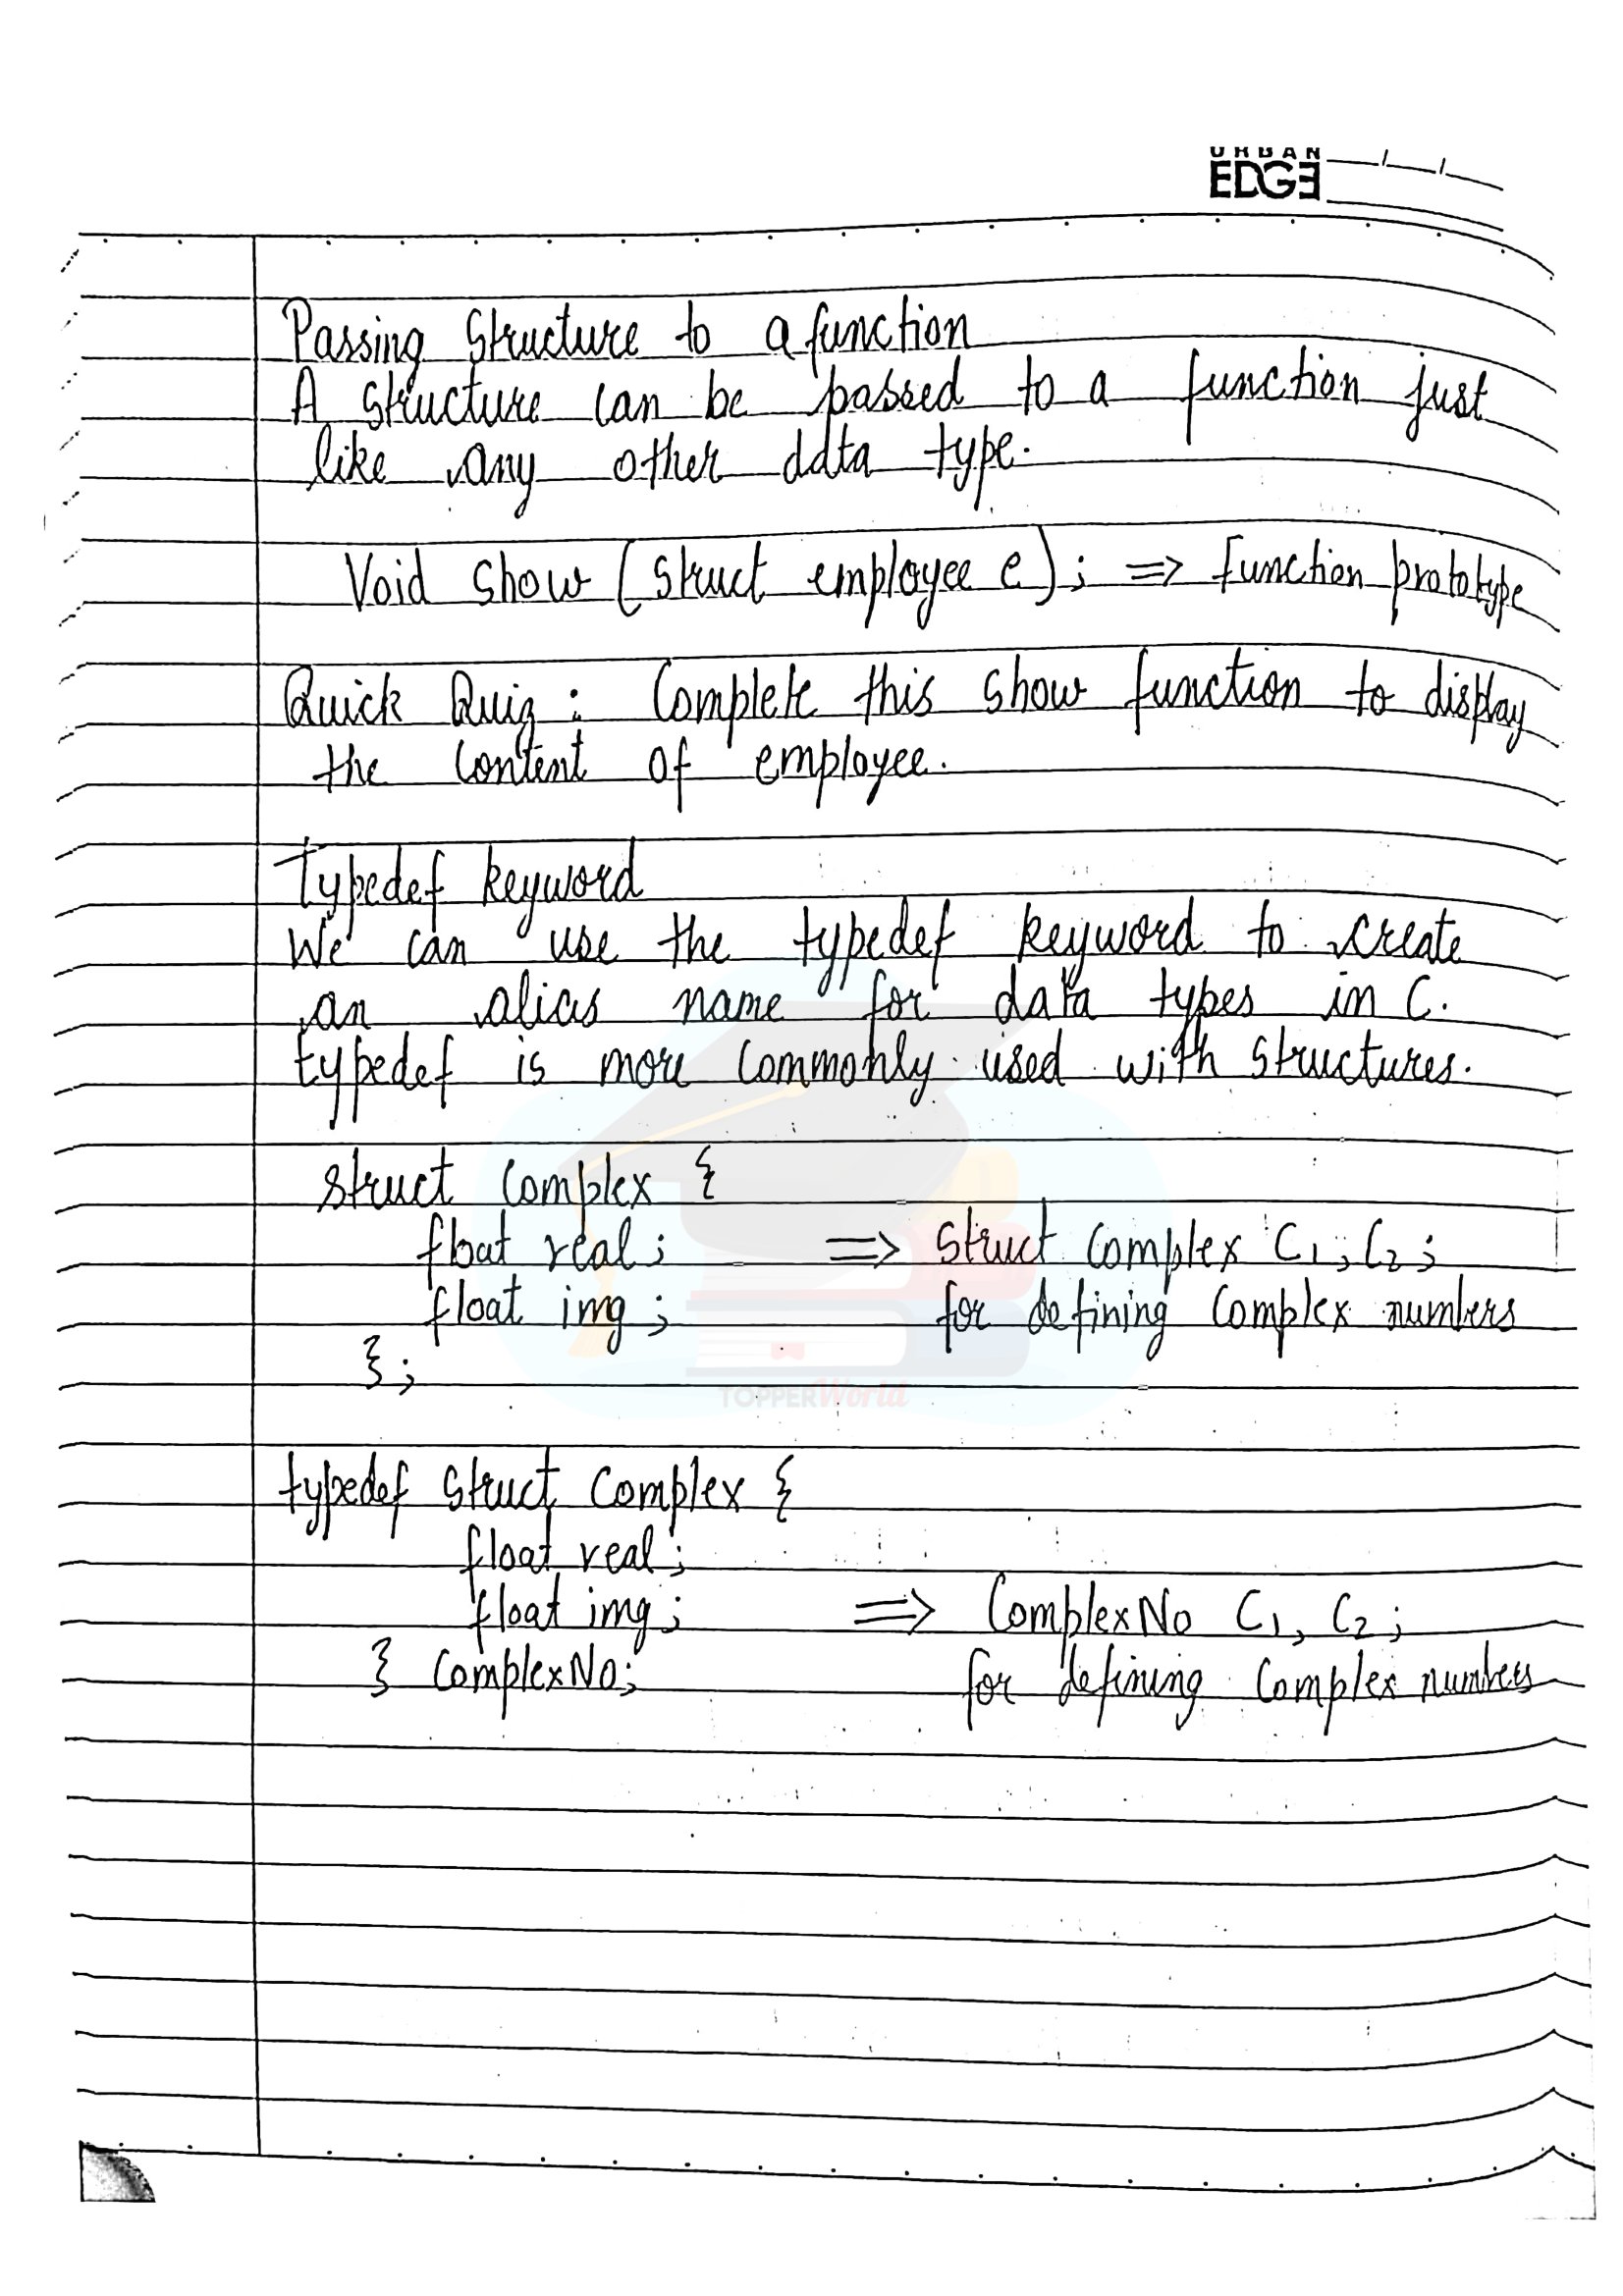 URBAN
EDGE
Passing Structure to a function
A structure can be passed to a function just
like any other data type.
Void show (struct employee e); => function prototype
Quick Quiz : Complete this show function to display
the content of employee.
Typedef keyword
We can use the typedef keyword to create
an alias name for data types in C.
typedef is more commonly used with structures.
struct complex {
float real; => struct complex C1, C2;
float img; for defining complex numbers
};
TOPPERWorld
typedef struct complex {
float real;
float img; => ComplexNo C1, C2;
} ComplexNo; for defining complex numbers